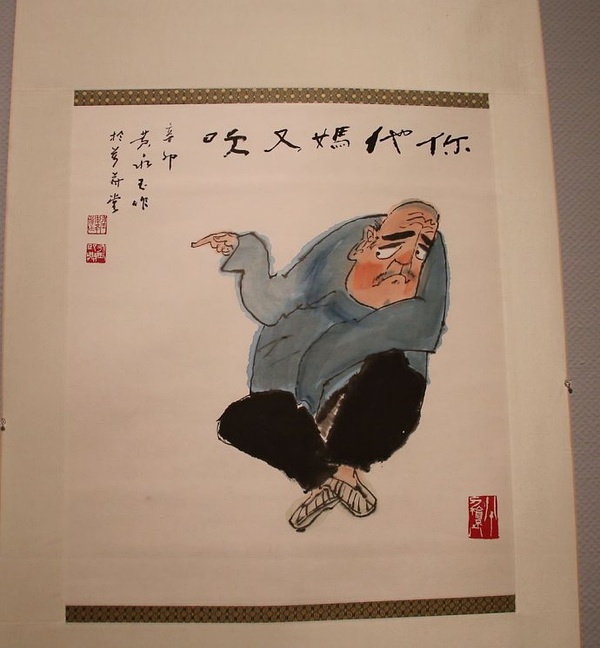 你他媽又吹
辛卯
黄永玉作
於萬荷堂